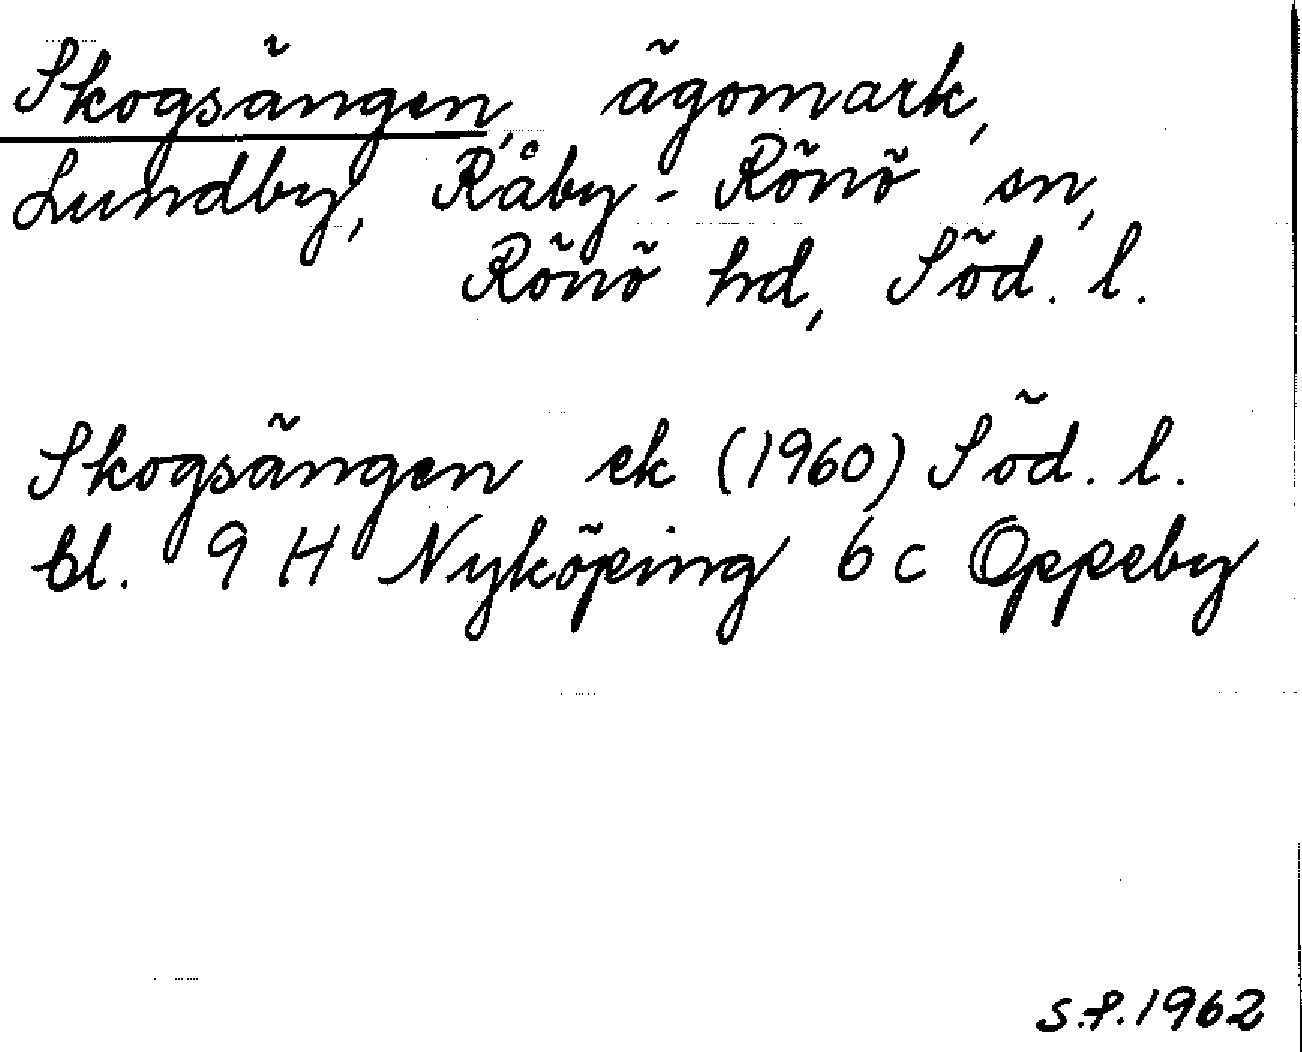 Skogsängen, ägomark,
Lundby, Råby-Rönö sn,
Rönö hd, Söd. l.
Skogsängen ek (1960) Söd. l.
bl. 9 H Nyköping 6 c Oppeby
S.P. 1962